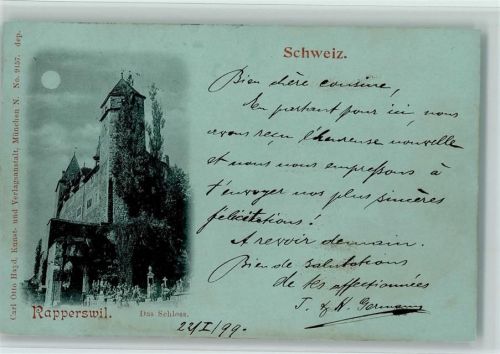 Carl Otto Hayd, Kunst- und Verlagsanstalt, München N. No. 9157. dep.
Schweiz.
Bien chère cousine,
En partant pour ici, nous
avons reçu l'heureuse nouvelle
et nous nous empressons à
t'envoyer nos plus sincères
félicitations!
A revoir demain.
Bien de salutations
de tes affectionnées
T. & H. Germann
Rapperswil.
Das Schloss.
22/I/99.